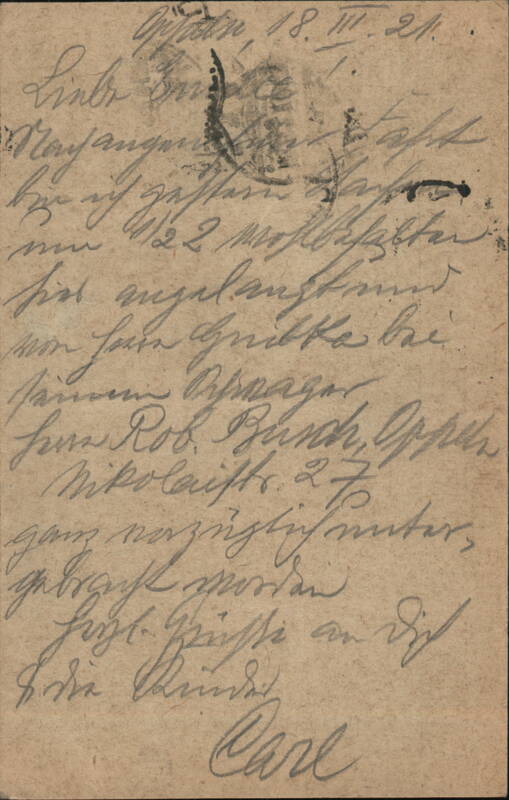 Oppeln, 18. III. 21.
Liebe
Nach angenehmer Fahrt
bin ich gestern Nachm.
um 1/2 2 wohlbehalten
hier angelangt und
von Herrn bei
seinem Schwager
Herrn Rob. Busch, Oppeln
Nikolaistr. 27
ganz vorzüglich unter-
gebracht worden
Herzl. Grüße an Dich
& die Kinder
Carl